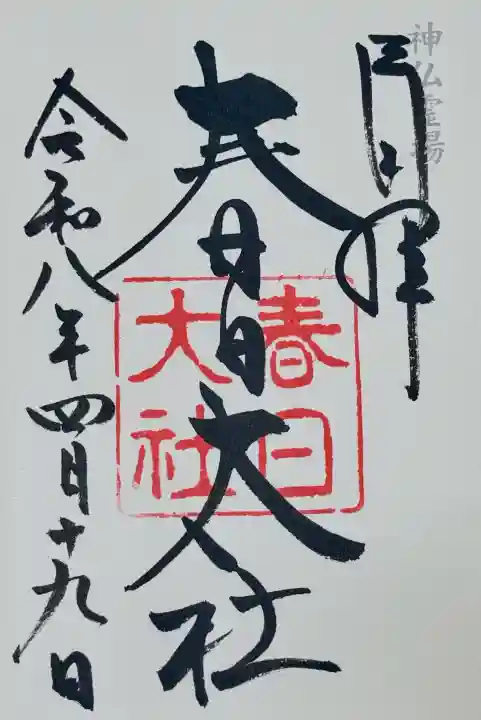 神仏霊場
拝
春日大社
春日
大社
令和八年四月十九日